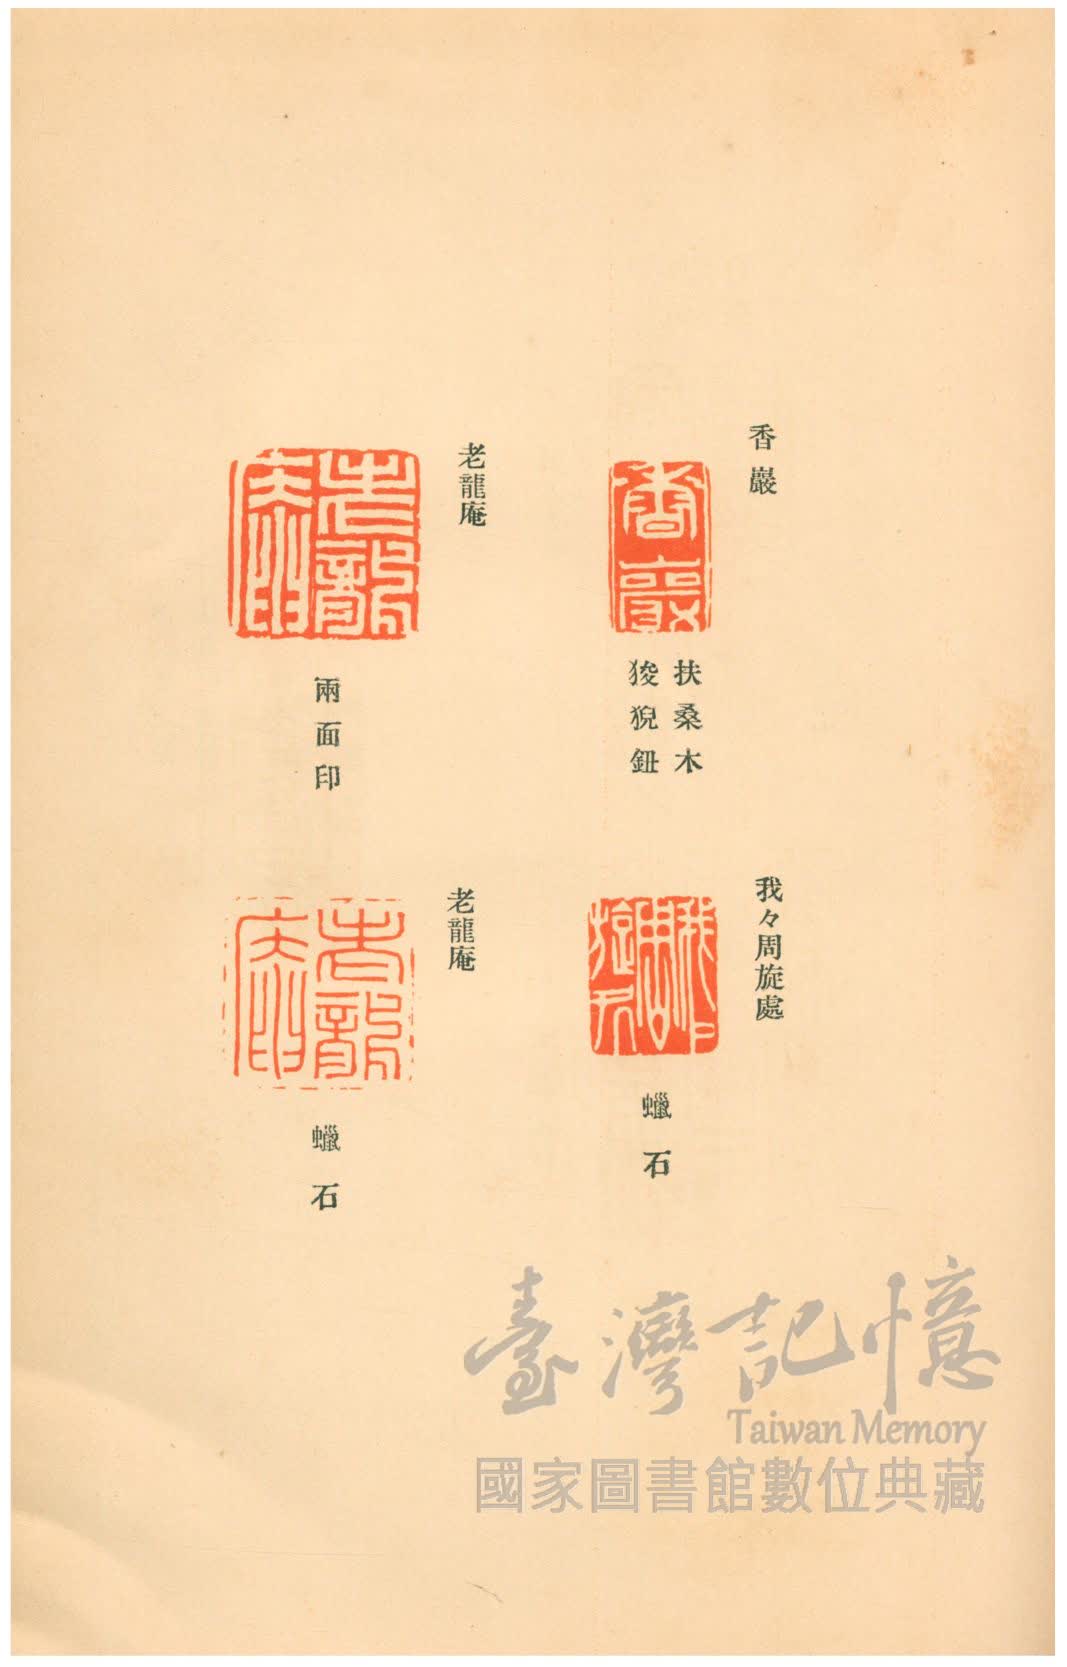 香巖
香巖
扶桑木
狻猊鈕
我々周旋處
我々周旋處
蠟石
老龍庵
老龍庵
兩面印
老龍庵
老龍庵
蠟石
臺灣記憶
Taiwan Memory
國家圖書館數位典藏